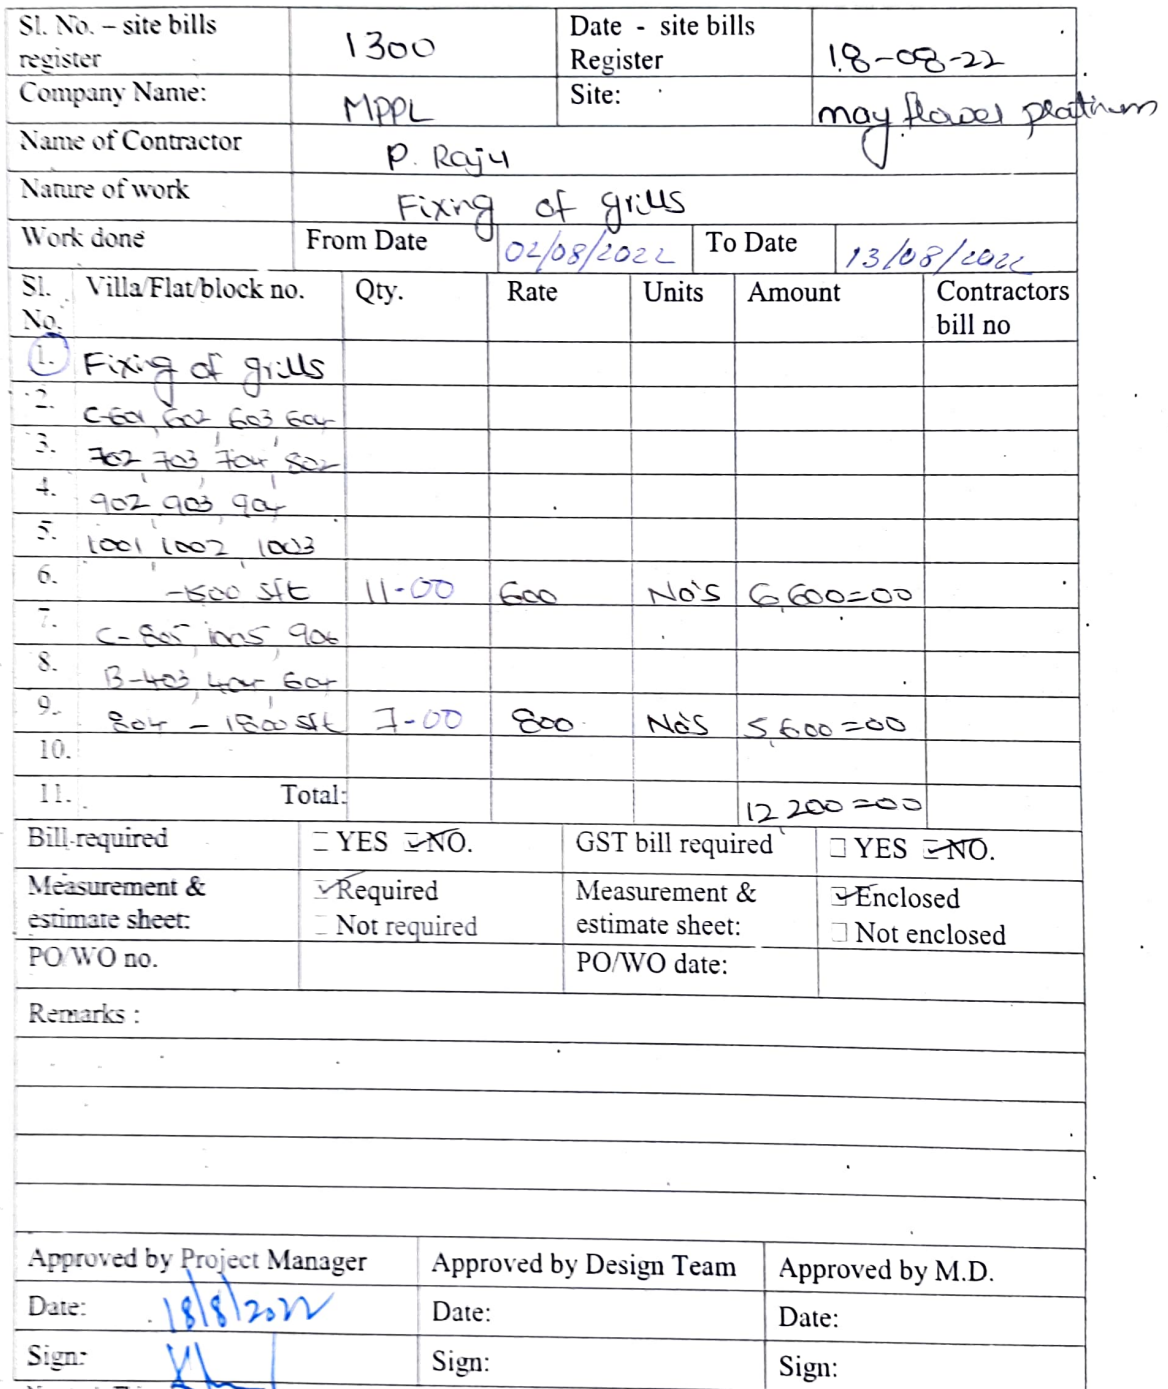 Sl. No. – site bills register 1300 Date - site bills Register 18-08-22
Company Name: MPPL Site: may flower platinum
Name of Contractor P. Raju
Nature of work Fixing of grills
Work done From Date 02/08/2022 To Date 13/08/2022
Sl. No. Villa/Flat/block no. Qty. Rate Units Amount Contractors bill no
1. Fixing of grills
2. C-601, 602, 603, 604
3. 702, 703, 704, 802
4. 902, 903, 904
5. 1001, 1002, 1003
6. -1500 sft 11-00 600 No's 6,600=00
7. C-805, 1005, 906
8. B-403, 404, 604
9. 804 - 1800 sft 7-00 800 No's 5,600=00
10.
11. Total: 12,200=00
Bill required YES NO. GST bill required YES NO.
Measurement & estimate sheet: Required Not required Measurement & estimate sheet: Enclosed Not enclosed
PO/WO no. PO/WO date:
Remarks :
Approved by Project Manager Approved by Design Team Approved by M.D.
Date: 18/8/2022 Date: Date:
Sign: Sign: Sign: